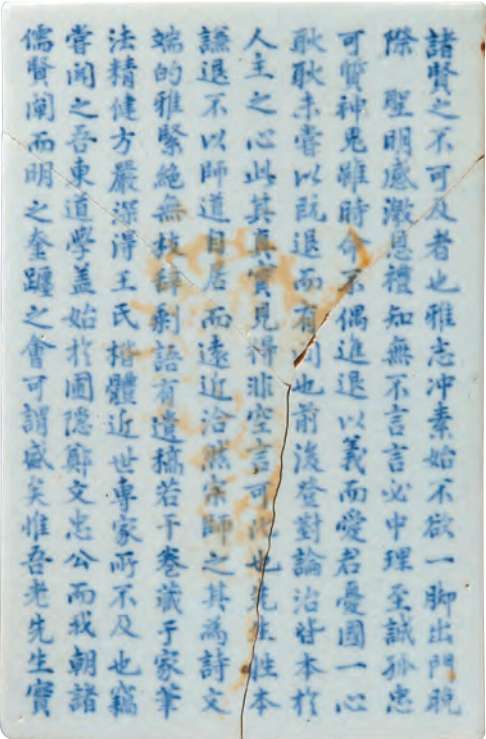 諸賢之不可及者也雅志冲素始不欲一脚出門晩
際 聖明感激恩禮知無不言言必中理至誠孤忠
可質神鬼雖時命不偶進退以義而愛君憂國一心
耿耿未嘗以既退而有間也前後登對論治皆本於
人主之心此其真實見得非空言可比也先生性本
謙退不以師道自居而遠近洽然宗師之其為詩文
端的雅緊絶無枝辞剩語有遺稿若干卷藏于家筆
法精健方嚴深得王氏楷體近世專家所不及也竊
嘗聞之吾東道學盖始於圃隱鄭文忠公而我朝諸
儒賢闡而明之奎躔之會可謂盛矣惟吾老先生實